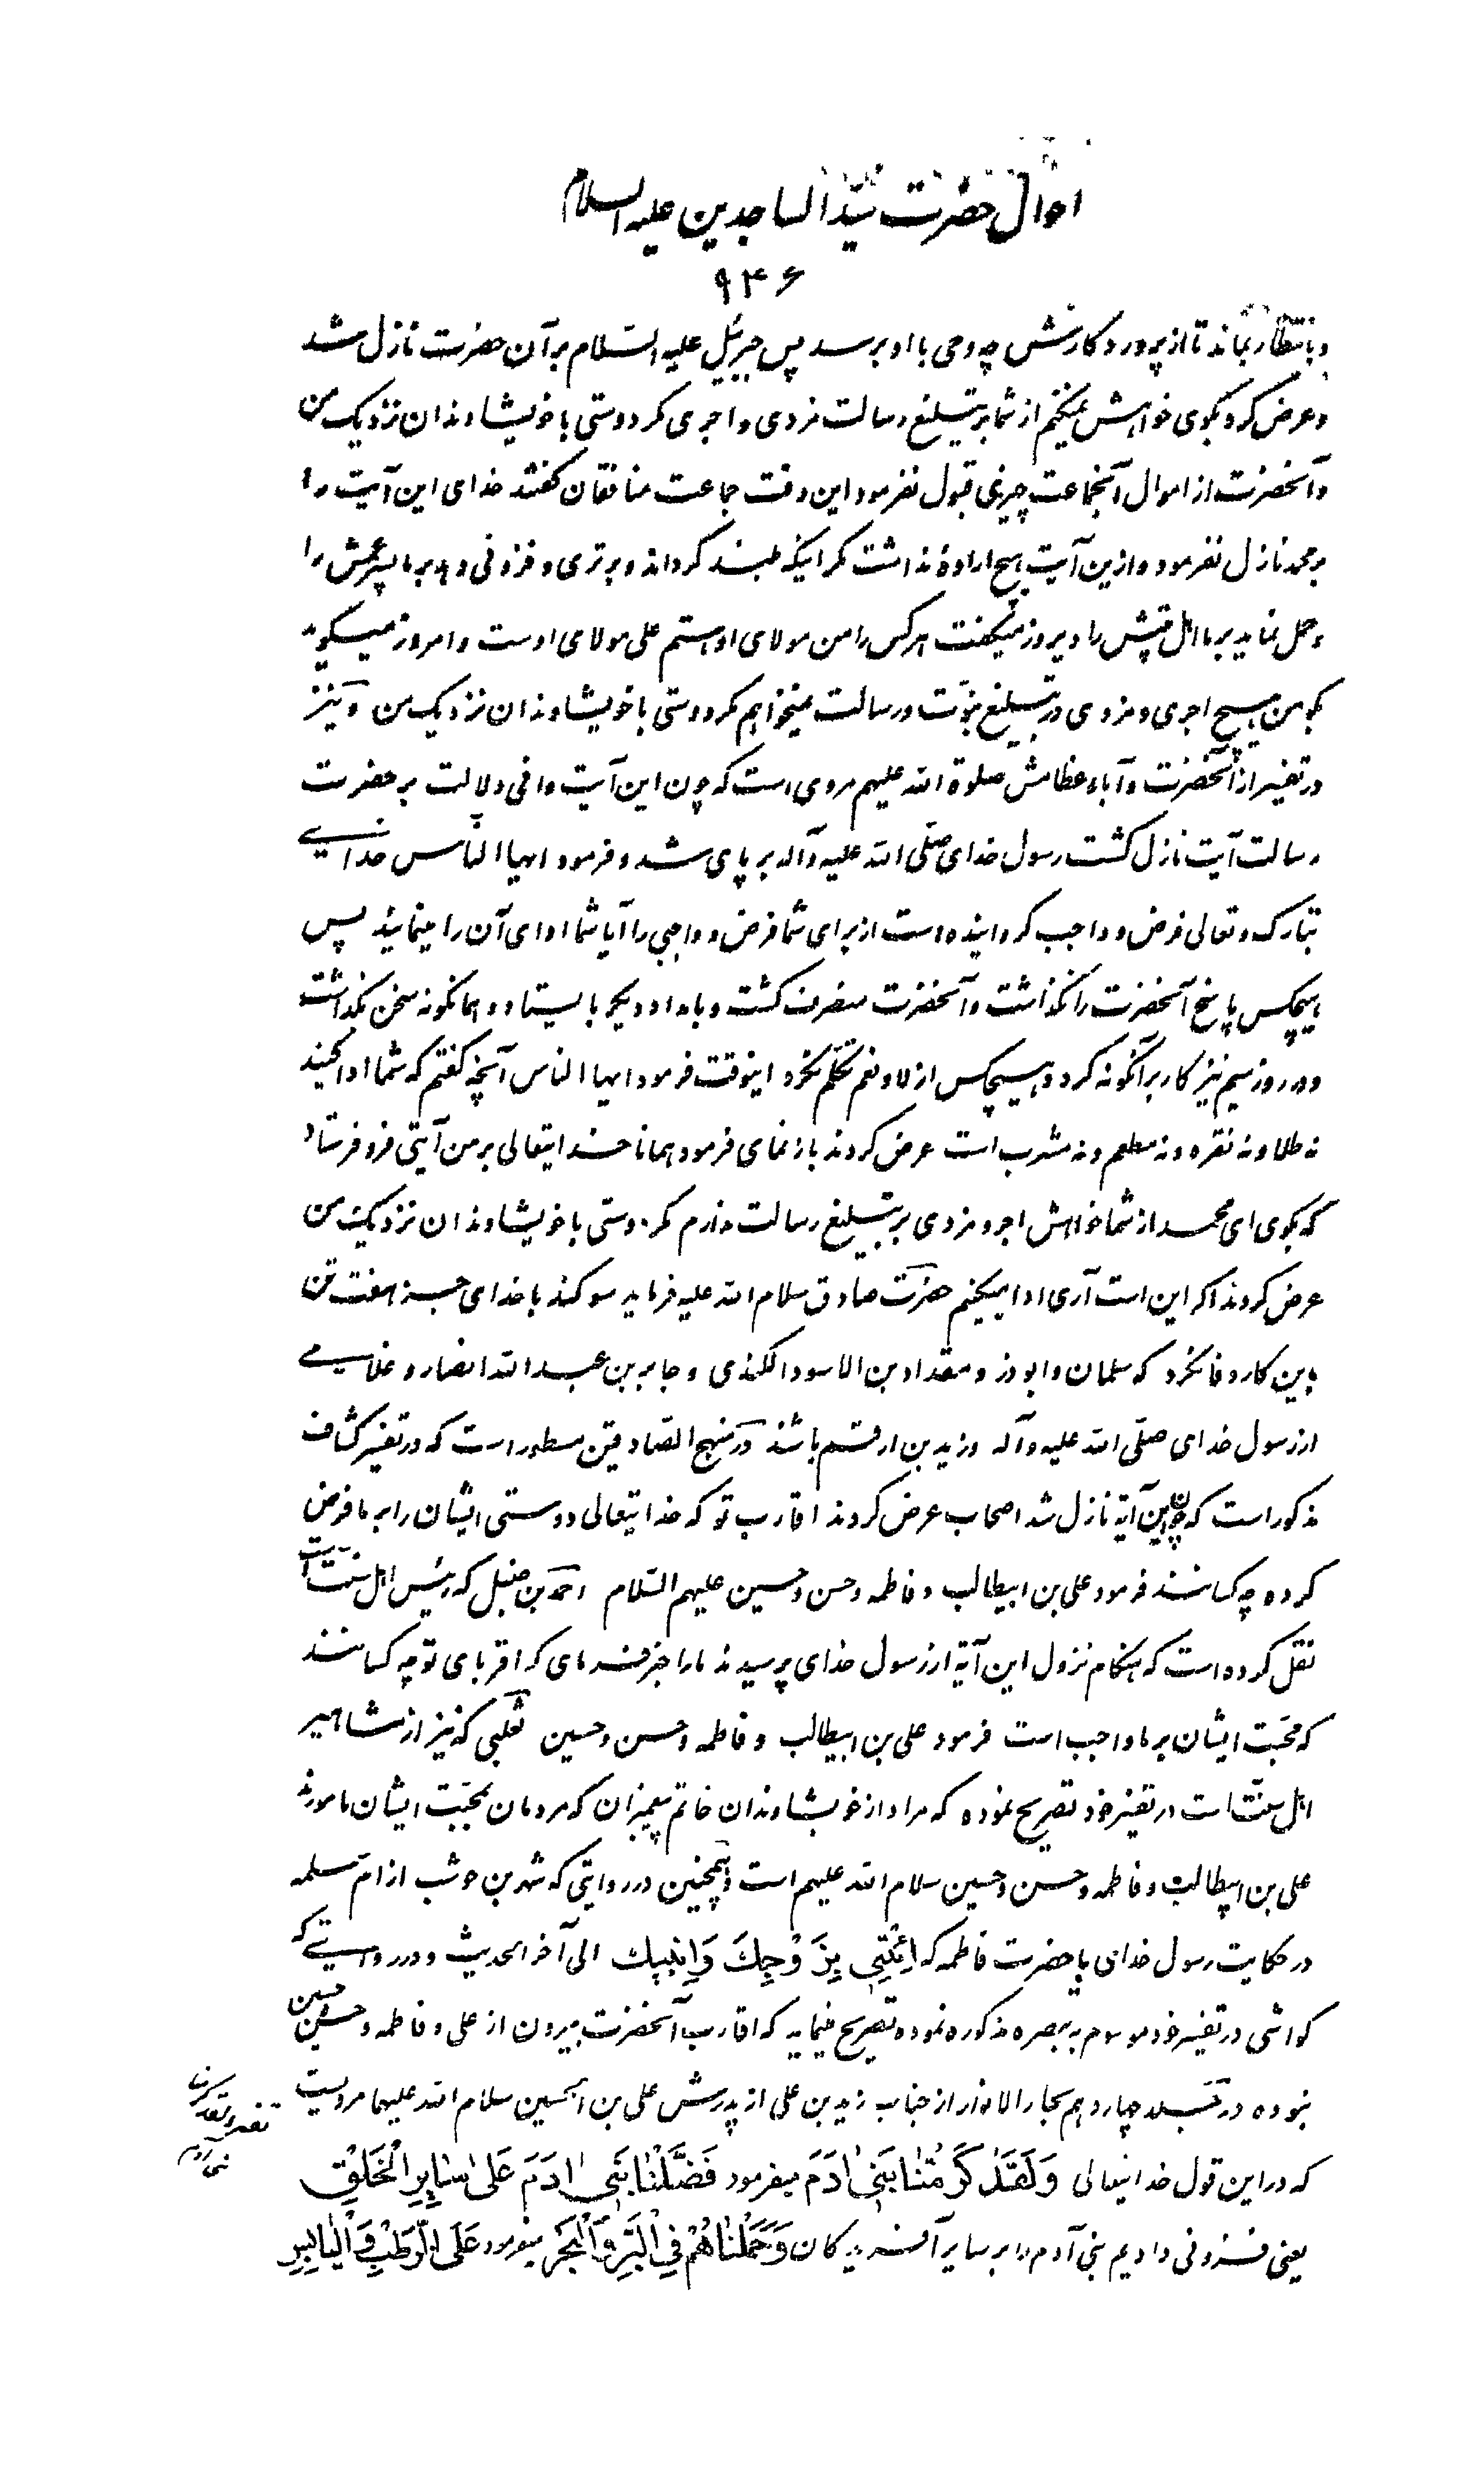 احوال حضرت سیّد الساجدین علیه السلام
۹۴۶
و بانتظار بماند تا از پروردگارش چه وحی با او برسد پس جبرئیل علیه السّلام بر آن حضرت نازل شد
و عرض کرد بگوی خواهش نمیکنم از شما بر تبلیغ رسالت مزدی و اجری مگر دوستی با خویشاوندان نزدیک من
و آنحضرت از اموال آنجماعت چیزی قبول نفرمود این وقت جماعت منافقان گفتند خدای این آیت را
بر محمد نازل نفرمود و ازین آیت هیچ اراده نداشت مگر اینکه بلند گرداند و برتری و فزونی دهد بر ما پسر عمش را
و حمل نماید بر ما اهل بیتش را دیروز میگفت هرکس را من مولای او هستم علی مولای اوست و امروز میگوید
بگو من هیچ اجری و مزدی در تبلیغ نبوّت و رسالت نمیخواهم مگر دوستی با خویشاوندان نزدیک من و نیز
در تفسیر از آنحضرت و آباء عظامش صلوة الله علیهم مروی است که چون این آیت وافی دلالت بر حضرت
رسالت آیت نازل گشت رسول خدای صلّی الله علیه و آله بر پای شد و فرمود ایها النّاس خدای
تبارک و تعالی فرض و واجب گردانیده است از برای شما فرض و واجبی را آیا شما ادای آن را مینمائید پس
هیچکس پاسخ آنحضرت را نگذاشت و آنحضرت منصرف گشت و بامداد دیگر بایستاد و همانگونه سخن بگذاشت
و در روز سیم نیز کار بر آنگونه کرد و هیچکس از لا و نعم تکلّم نکرد اینوقت فرمود ایها الناس آنچه گفتم که شما ادا کنید
نه طلا و نه نقره و نه مطعم و نه مشرب است عرض کردند باز نمای فرمود همانا خدایتعالی بر من آیتی فرو فرستاد
که بگوی ای محمد از شما خواهش اجر و مزدی بر تبلیغ رسالت ندارم مگر دوستی با خویشاوندان نزدیک من
عرض کردند اگر این است آری ادا میکنیم حضرت صادق سلام الله علیه فرماید سوگند با خدای جز هفت تن
باین کار وفا نکرد که سلمان و ابوذر و مقداد بن الاسود الکندی و جابر بن عبد الله انصار و غلامی
از رسول خدای صلّی الله علیه و آله و زید بن ارقم باشند و در منهج الصّادقین مسطور است که در تفسیر کشاف
مذکور است که چون این آیة نازل شد اصحاب عرض کردند اقارب تو که خدایتعالی دوستی ایشان را بر ما فرض
کرده چه کسانند فرمود علی بن ابیطالب و فاطمه و حسن و حسین علیهم السّلام احمد بن حنبل که رئیس اهل سنّت است
نقل کرده است که هنگام نزول این آیة از رسول خدای پرسیدند ما را خبر فرمای که اقربای تو چه کسانند
که محبّت ایشان بر ما واجب است فرمود علی بن ابیطالب و فاطمه و حسن و حسین ثعلبی که نیز از مشاهیر
اهل سنّت است در تفسیر خود تصریح نموده که مراد از خویشاوندان خاتم پیغمبران که مردمان بمحبّت ایشان مامورند
علی بن ابیطالب و فاطمه و حسن و حسین سلام الله علیهم است و همچنین در روایتی که شهر بن حوشب از امّ سلمه
در حکایت رسول خدای با حضرت فاطمه که اِئْتِینی بِزَوْجِكَ وَ اِبْنَیِكِ الی آخر الحدیث و در روایتی که
کواشی در تفسیر خود موسوم به تبصره مذکوره نموده تصریح مینماید که اقارب آنحضرت بیرون از علی و فاطمه و حسن و حسین
نبوده و در جلد چهاردهم بحار الانوار از جناب زید بن علی از پدرش علی بن الحسین سلام الله علیهما مرویست
تفسیر و لقد کرمنا بنی آدم
که در این قول خدایتعالی وَلَقَدْ كَرَّمْنا بَنی ادَمَ میفرمود فَضَّلْنا بَنی ادَمَ عَلى سایِرِ الْخَلْقِ
یعنی فزونی دادیم بنی آدم را بر سایر آفریدگان وَحَمَلْناهُمْ فِی الْبَرِّ وَالْبَحْرِ میفرمود عَلَى الرَّطْبِ وَالْیابِسِ